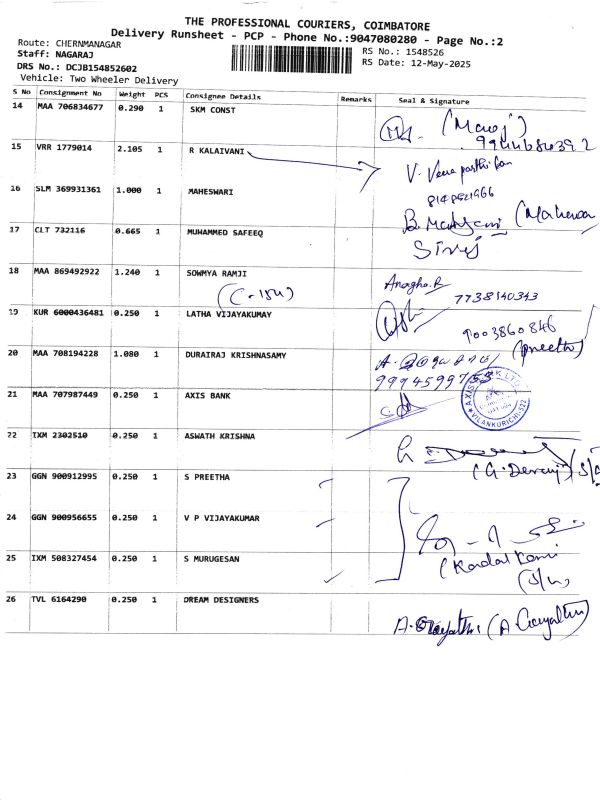 THE PROFESSIONAL COURIERS, COIMBATORE
Delivery Runsheet - PCP - Phone No.:9047080280 - Page No.:2
Route: CHERNMANAGAR
Staff: NAGARAJ
DRS No.: DCJB154852602
Vehicle: Two Wheeler Delivery
RS No.: 1548526
RS Date: 12-May-2025
S No Consignment No Weight PCS Consignee Details Remarks Seal & Signature
14 MAA 706834677 0.290 1 SKM CONST
(Manoj)
15 VRR 1779014 2.105 1 R KALAIVANI
16 SLM 369931361 1.000 1 MAHESWARI
17 CLT 732116 0.665 1 MUHAMMED SAFEEQ
18 MAA 869492922 1.240 1 SOWMYA RAMJI
Anagha.R
7738140343
19 KUR 6000436481 0.250 1 LATHA VIJAYAKUMAY
9003860846
(preethi)
20 MAA 708194228 1.080 1 DURAIRAJ KRISHNASAMY
21 MAA 707987449 0.250 1 AXIS BANK
22 IXM 2302510 0.250 1 ASWATH KRISHNA
23 GGN 900912995 0.250 1 S PREETHA
24 GGN 900956655 0.250 1 V P VIJAYAKUMAR
25 IXM 508327454 0.250 1 S MURUGESAN
26 TVL 6164290 0.250 1 DREAM DESIGNERS
A. Gayathri (A Gayathri)